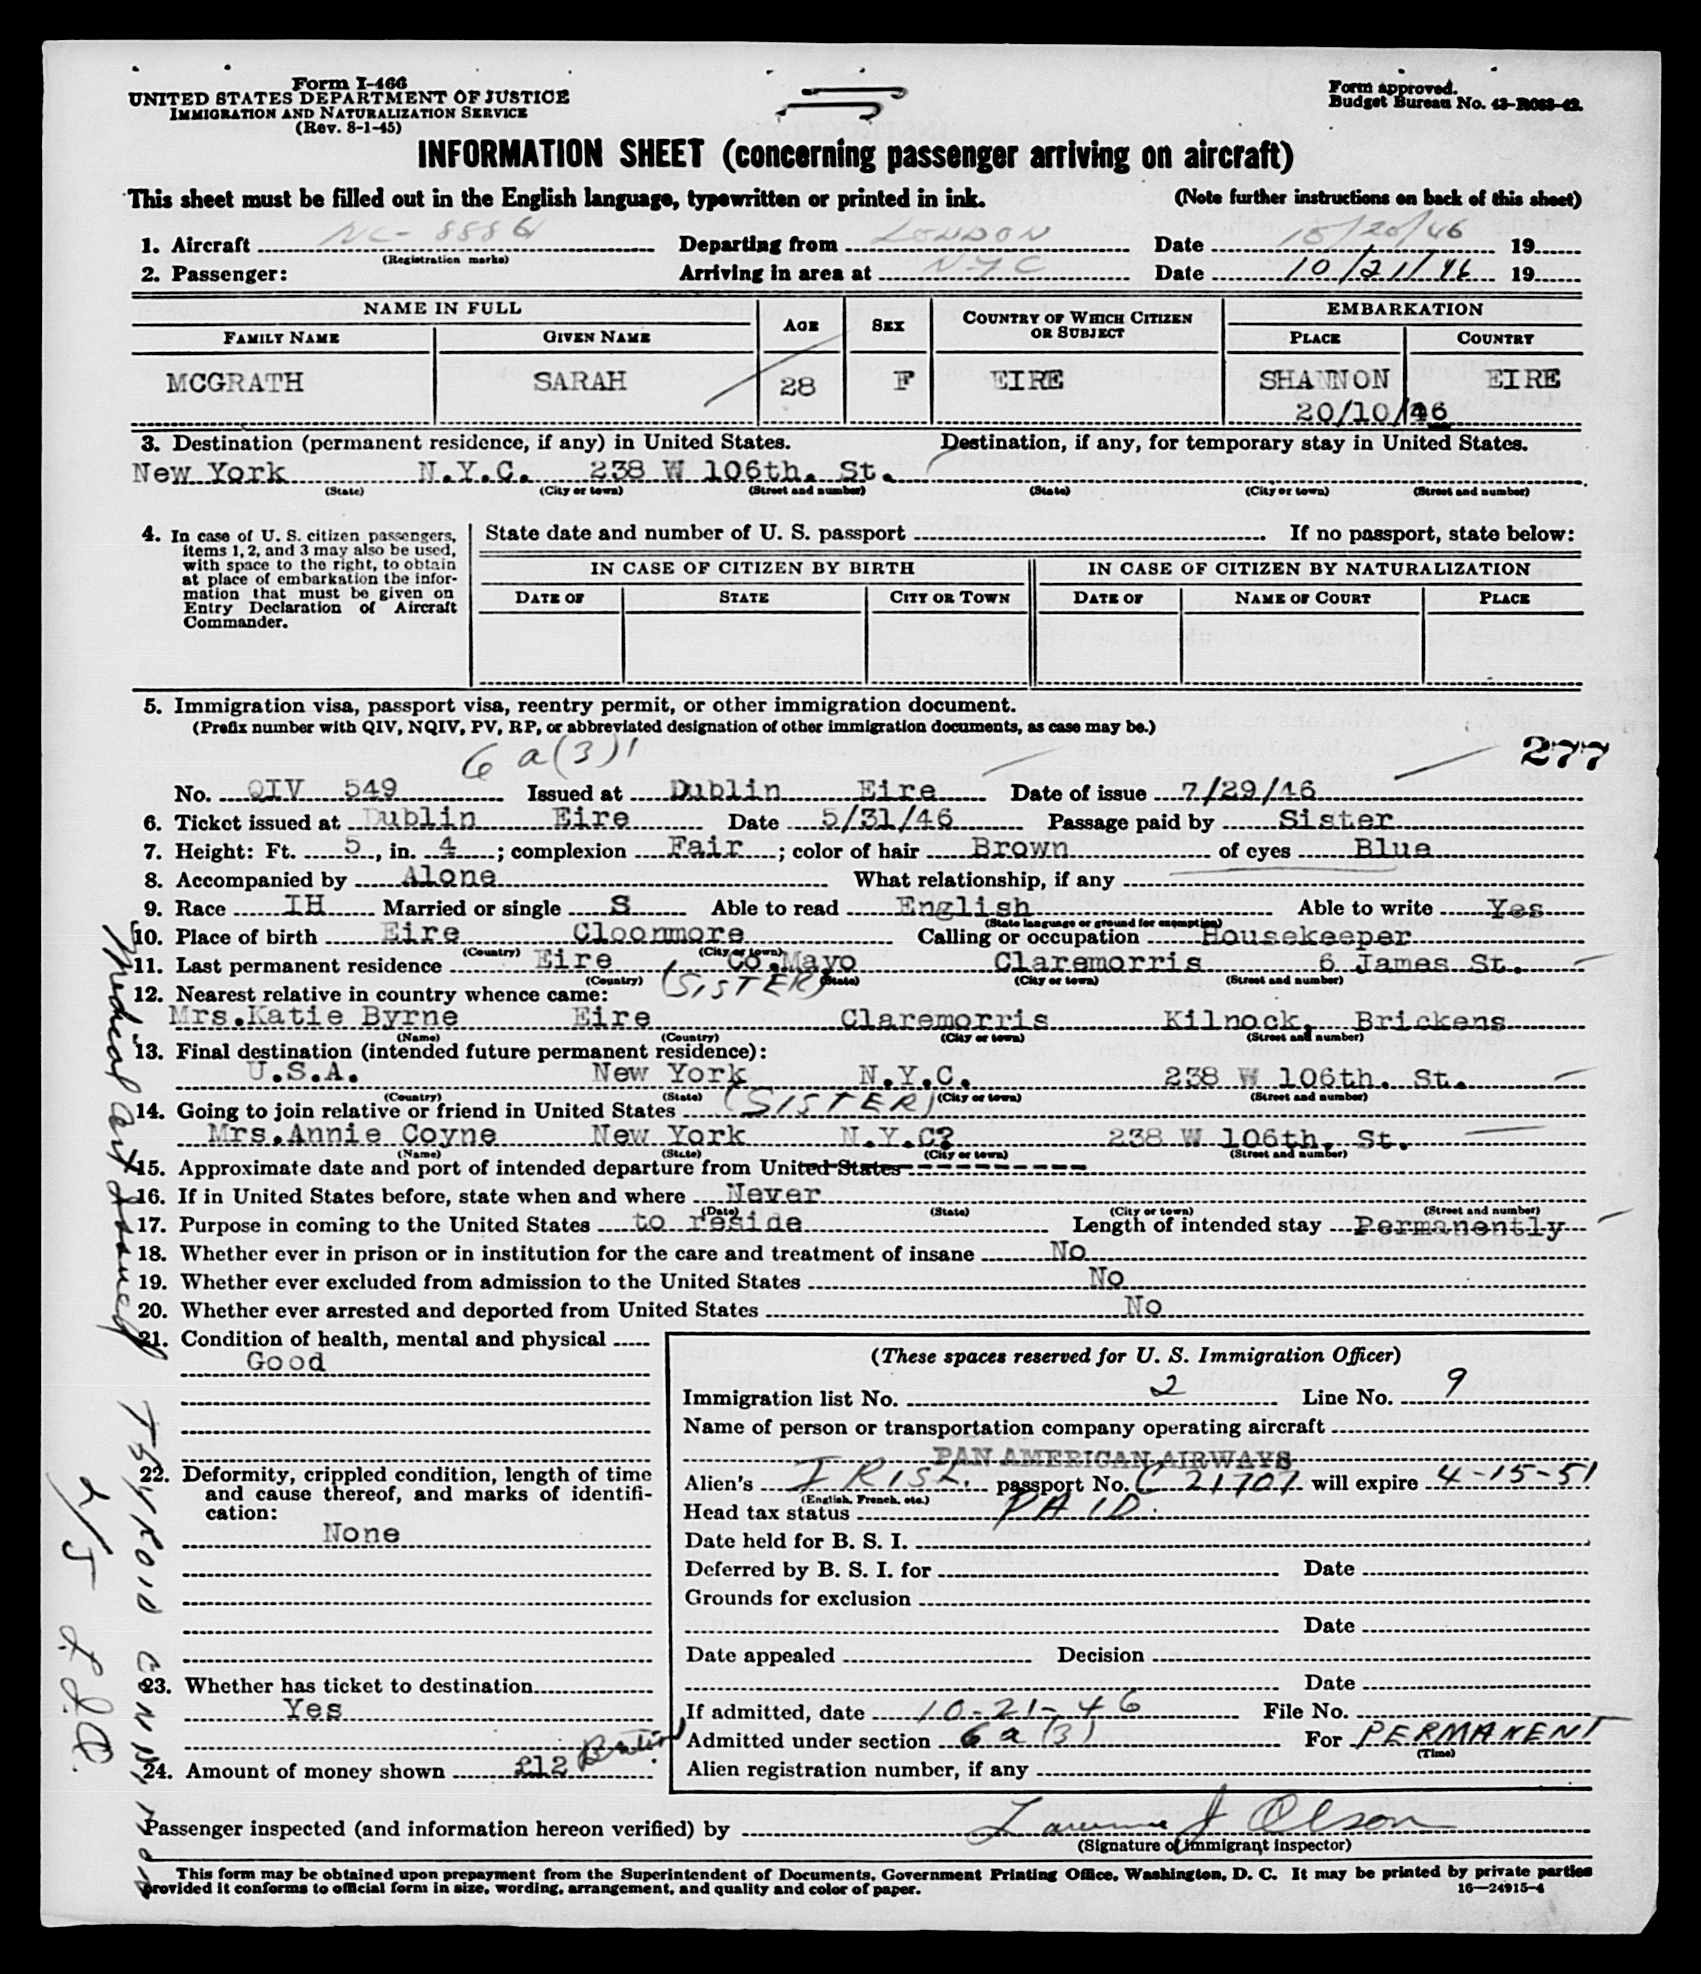 Form I-466
UNITED STATES DEPARTMENT OF JUSTICE
IMMIGRATION AND NATURALIZATION SERVICE
(Rev. 8-1-45)
Form approved.
Budget Bureau No. 43-R063-42.
INFORMATION SHEET (concerning passenger arriving on aircraft)
This sheet must be filled out in the English language, typewritten or printed in ink. (Note further instructions on back of this sheet)
1. Aircraft NC-88861 Departing from LONDON Date 10/20/46 19
(Registration marks)
2. Passenger: Arriving in area at NYC Date 10/21/46 19
NAME IN FULL EMBARKATION
FAMILY NAME GIVEN NAME AGE SEX COUNTRY OF WHICH CITIZEN OR SUBJECT PLACE COUNTRY
MCGRATH SARAH 28 F EIRE SHANNON EIRE
20/10/46
3. Destination (permanent residence, if any) in United States. Destination, if any, for temporary stay in United States.
New York N.Y.C. 238 W 106th. St.
(State) (City or town) (Street and number) (State) (City or town) (Street and number)
4. In case of U. S. citizen passengers, items 1, 2, and 3 may also be used, with space to the right, to obtain at place of embarkation the information that must be given on Entry Declaration of Aircraft Commander.
State date and number of U. S. passport . If no passport, state below:
IN CASE OF CITIZEN BY BIRTH IN CASE OF CITIZEN BY NATURALIZATION
DATE OF STATE CITY OR TOWN DATE OF NAME OF COURT PLACE
5. Immigration visa, passport visa, reentry permit, or other immigration document.
(Prefix number with QIV, NQIV, PV, RP, or abbreviated designation of other immigration documents, as case may be.)
6 a(3)1 277
No. QIV 549 Issued at Dublin Eire Date of issue 7/29/46
6. Ticket issued at Dublin Eire Date 5/31/46 Passage paid by Sister
7. Height: Ft. 5, in. 4; complexion Fair; color of hair Brown of eyes Blue
8. Accompanied by Alone What relationship, if any
9. Race IH Married or single S Able to read English Able to write Yes
(State language or ground for exemption)
10. Place of birth Eire Cloonmore Calling or occupation Housekeeper
(Country) (City or town)
11. Last permanent residence Eire Co.Mayo Claremorris 6 James St.
(Country) (State) (City or town) (Street and number)
12. Nearest relative in country whence came: (SISTER)
Mrs.Katie Byrne Eire Claremorris Kilnock, Brickens
(Name) (Country) (City or town) (Street and number)
13. Final destination (intended future permanent residence):
U.S.A. New York N.Y.C. 238 W 106th. St.
(Country) (State) (City or town) (Street and number)
14. Going to join relative or friend in United States (SISTER)
Mrs.Annie Coyne New York N.Y.C? 238 W 106th. St.
(Name) (State) (City or town) (Street and number)
15. Approximate date and port of intended departure from United States
16. If in United States before, state when and where Never
(Date) (State) (City or town) (Street and number)
17. Purpose in coming to the United States to reside Length of intended stay Permanently
18. Whether ever in prison or in institution for the care and treatment of insane No
19. Whether ever excluded from admission to the United States No
20. Whether ever arrested and deported from United States No
21. Condition of health, mental and physical
Good
22. Deformity, crippled condition, length of time and cause thereof, and marks of identification:
None
23. Whether has ticket to destination
Yes
24. Amount of money shown £12 British
(These spaces reserved for U. S. Immigration Officer)
Immigration list No. 2 Line No. 9
Name of person or transportation company operating aircraft
PAN AMERICAN AIRWAYS
Alien's IRISH passport No. C 21707 will expire 4-15-51
(English, French, etc.)
Head tax status PAID.
Date held for B. S. I.
Deferred by B. S. I. for Date
Grounds for exclusion
Date
Date appealed Decision
Date
If admitted, date 10-21-46 File No.
Admitted under section 6 a (3) For PERMANENT
(Time)
Alien registration number, if any
Passenger inspected (and information hereon verified) by Lawrence J Olson
(Signature of immigrant inspector)
This form may be obtained upon prepayment from the Superintendent of Documents, Government Printing Office, Washington, D. C. It may be printed by private parties
provided it conforms to official form in size, wording, arrangement, and quality and color of paper. 16—24915-4
Medical Cert Issued
THYROID